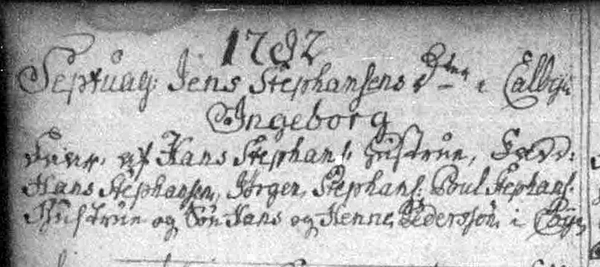 1782
Septuag: Jens Stephansens i Calbye
Ingeborg
af Hans Stephans: Hustrue,
Hans Stephansen, Jørgen Stephans: Poul Stephans:
Hustrue og Søn Hans og Henne Pedersøn i